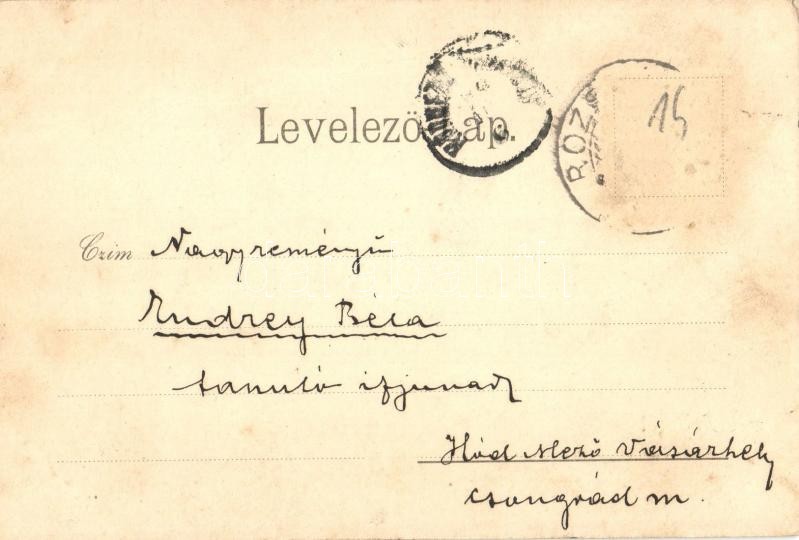 Levelező Lap.
15
ROZ
Czim Nagyreményű
Endrey Béla
tanuló ifjunak
Hód Mező Vásárhely
Csongrád m.